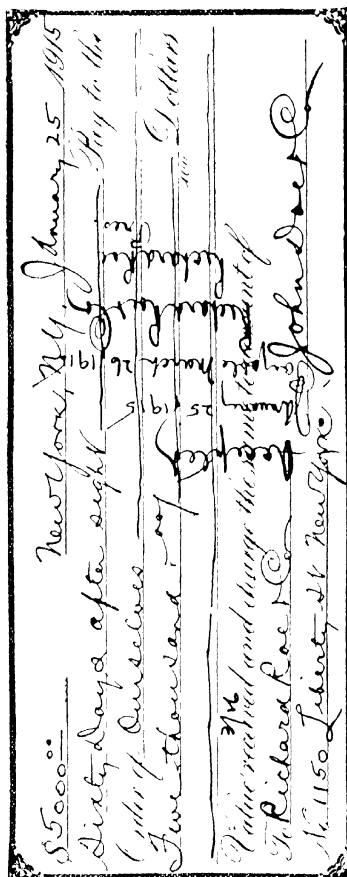 $5000.00 New York, N.Y. January 25 1915
Sixty Days after sight Pay to the
Order of Ourselves
Five thousand no/ Dollars
Value received and charge the same to account of
To Richard Roe & Co John Doe & Co.
No. 1150 Liberty St New York.
3/26
Accepted
January 25, 1915
Payable March 26 1915
Richard Roe & Co
Richard Roe